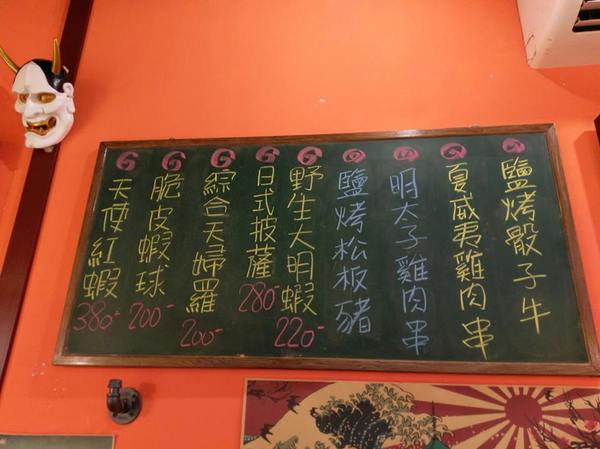 鹽烤骰子牛
夏威夷雞肉串
明太子雞肉串
鹽烤松板豬
野生大明蝦
220-
日式披薩
280-
綜合天婦羅
200-
脆皮蝦球
200-
天使紅蝦
380-